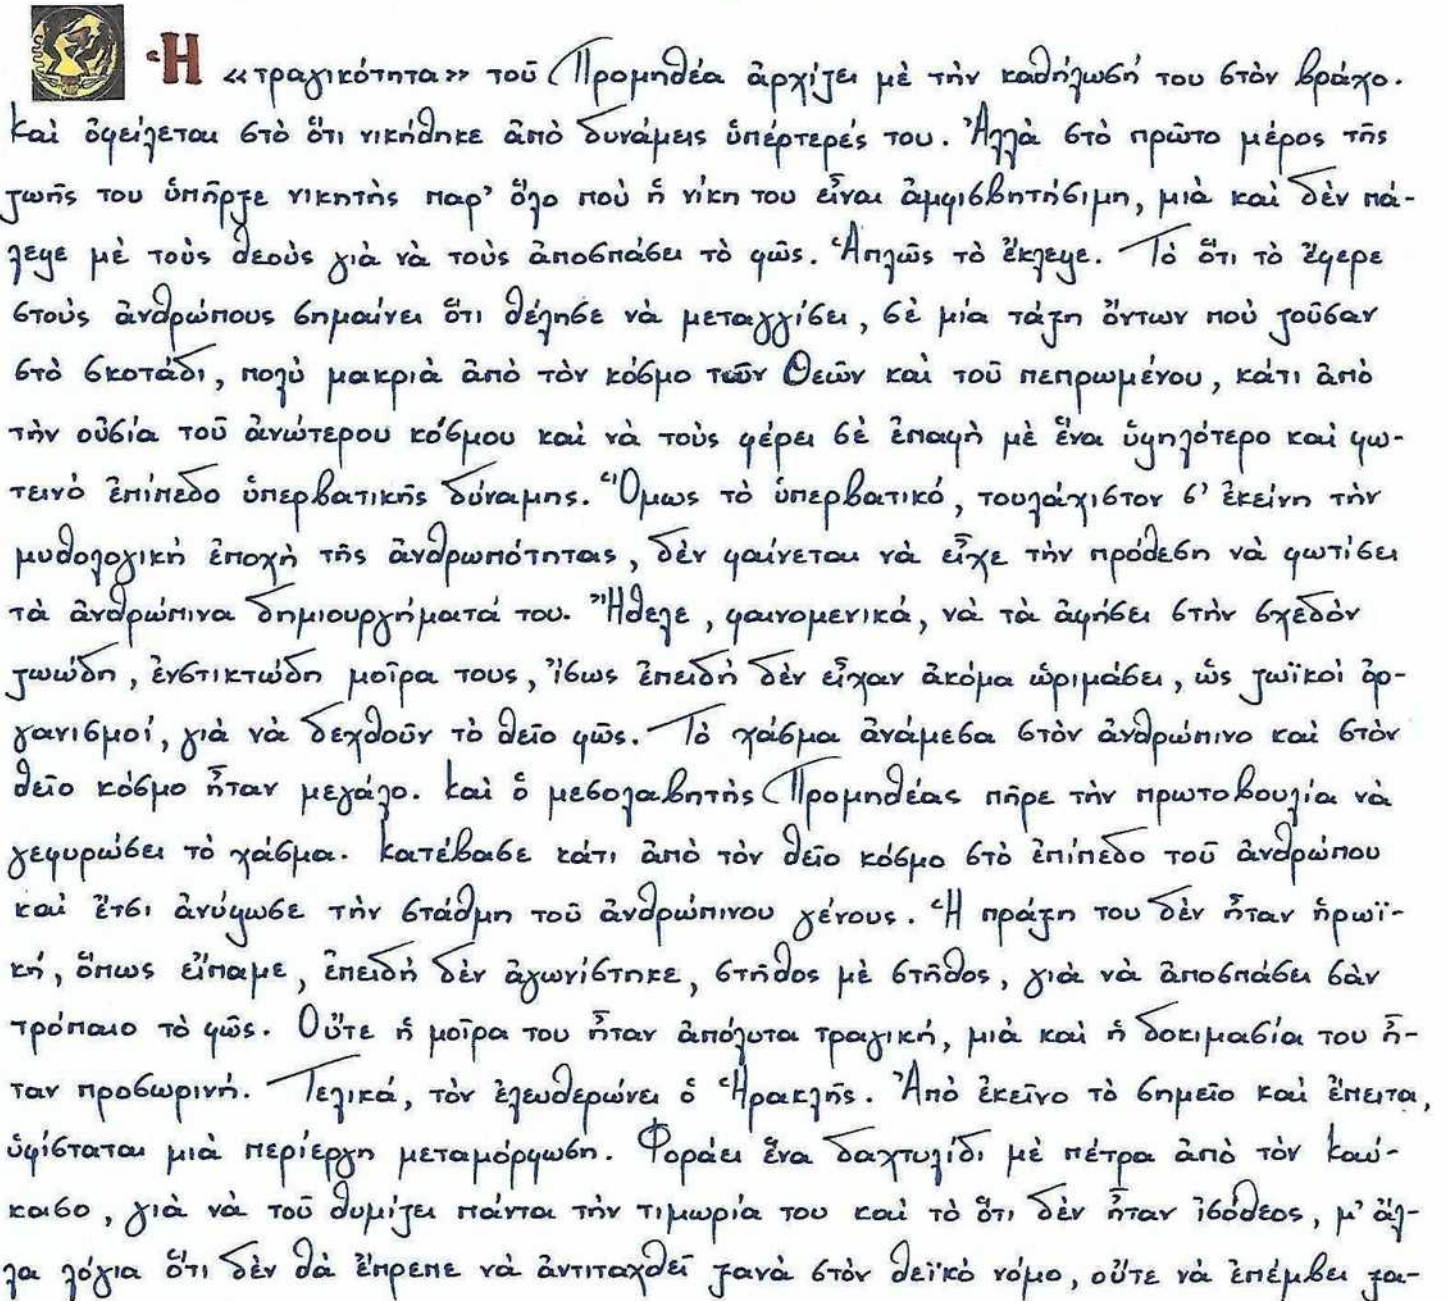 Ἡ «τραγικότητα» τοῦ Προμηθέα ἀρχίζει μὲ τὴν καθήλωσή του στὸν βράχο.
Καὶ ὀφείλεται στὸ ὅτι νικήθηκε ἀπὸ δυνάμεις ὑπέρτερές του. Ἀλλὰ στὸ πρῶτο μέρος τῆς
ζωῆς του ὑπῆρξε νικητὴς παρ' ὅλο ποὺ ἡ νίκη του εἶναι ἀμφισβητήσιμη, μιὰ καὶ δὲν πά-
λεψε μὲ τοὺς θεοὺς γιὰ νὰ τοὺς ἀποσπάσει τὸ φῶς. Ἁπλῶς τὸ ἔκλεψε. Τὸ ὅτι τὸ ἔφερε
στοὺς ἀνθρώπους σημαίνει ὅτι θέλησε νὰ μεταγγίσει, σὲ μία τάξη ὄντων ποὺ ζοῦσαν
στὸ σκοτάδι, πολὺ μακριὰ ἀπὸ τὸν κόσμο τῶν Θεῶν καὶ τοῦ πεπρωμένου, κάτι ἀπὸ
τὴν οὐσία τοῦ ἀνώτερου κόσμου καὶ νὰ τοὺς φέρει σὲ ἐπαφὴ μὲ ἕνα ὑψηλότερο καὶ φω-
τεινὸ ἐπίπεδο ὑπερβατικῆς δύναμης. Ὅμως τὸ ὑπερβατικό, τουλάχιστον σ' ἐκείνη τὴν
μυθολογικὴ ἐποχὴ τῆς ἀνθρωπότητας, δὲν φαίνεται νὰ εἶχε τὴν πρόθεση νὰ φωτίσει
τὰ ἀνθρώπινα δημιουργήματά του. Ἤθελε, φαινομενικά, νὰ τὰ ἀφήσει στὴν σχεδὸν
ζωώδη, ἐνστικτώδη μοῖρα τους, ἴσως ἐπειδὴ δὲν εἶχαν ἀκόμα ὡριμάσει, ὡς ζωϊκοὶ ὀρ-
γανισμοί, γιὰ νὰ δεχθοῦν τὸ θεῖο φῶς. Τὸ χάσμα ἀνάμεσα στὸν ἀνθρώπινο καὶ στὸν
θεῖο κόσμο ἦταν μεγάλο. Καὶ ὁ μεσολαβητὴς Προμηθέας πῆρε τὴν πρωτοβουλία νὰ
γεφυρώσει τὸ χάσμα. Κατέβασε κάτι ἀπὸ τὸν θεῖο κόσμο στὸ ἐπίπεδο τοῦ ἀνθρώπου
καὶ ἔτσι ἀνύψωσε τὴν στάθμη τοῦ ἀνθρώπινου γένους. Ἡ πράξη του δὲν ἦταν ἡρωϊ-
κή, ὅπως εἴπαμε, ἐπειδὴ δὲν ἀγωνίστηκε, στῆθος μὲ στῆθος, γιὰ νὰ ἀποσπάσει σὰν
τρόπαιο τὸ φῶς. Οὔτε ἡ μοῖρα του ἦταν ἀπόλυτα τραγική, μιὰ καὶ ἡ δοκιμασία του ἦ-
ταν προσωρινή. Τελικά, τὸν ἐλευθερώνει ὁ Ἡρακλῆς. Ἀπὸ ἐκεῖνο τὸ σημεῖο καὶ ἔπειτα,
ὑφίσταται μιὰ περίεργη μεταμόρφωση. Φοράει ἕνα δαχτυλίδι μὲ πέτρα ἀπὸ τὸν Καύ-
κασο, γιὰ νὰ τοῦ θυμίζει πάντα τὴν τιμωρία του καὶ τὸ ὅτι δὲν ἦταν ἰσόθεος, μ' ἄλ-
λα λόγια ὅτι δὲν θὰ ἔπρεπε νὰ ἀντιταχθεῖ ξανὰ στὸν θεϊκὸ νόμο, οὔτε νὰ ἐπέμβει ξα-